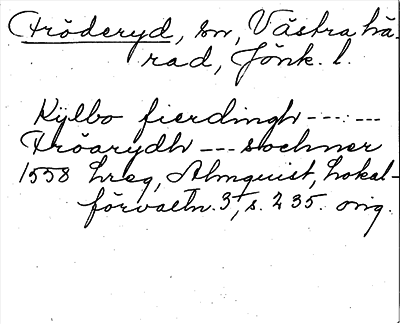 Fröderyd, sn, Västra hä-
rad, Jönk. l.
Kylbo fierdingh --- : ---
Fröarydh --- sochner
1558 hreg, Almquist, Lokal-
förvaltn. 3, s. 235. orig.